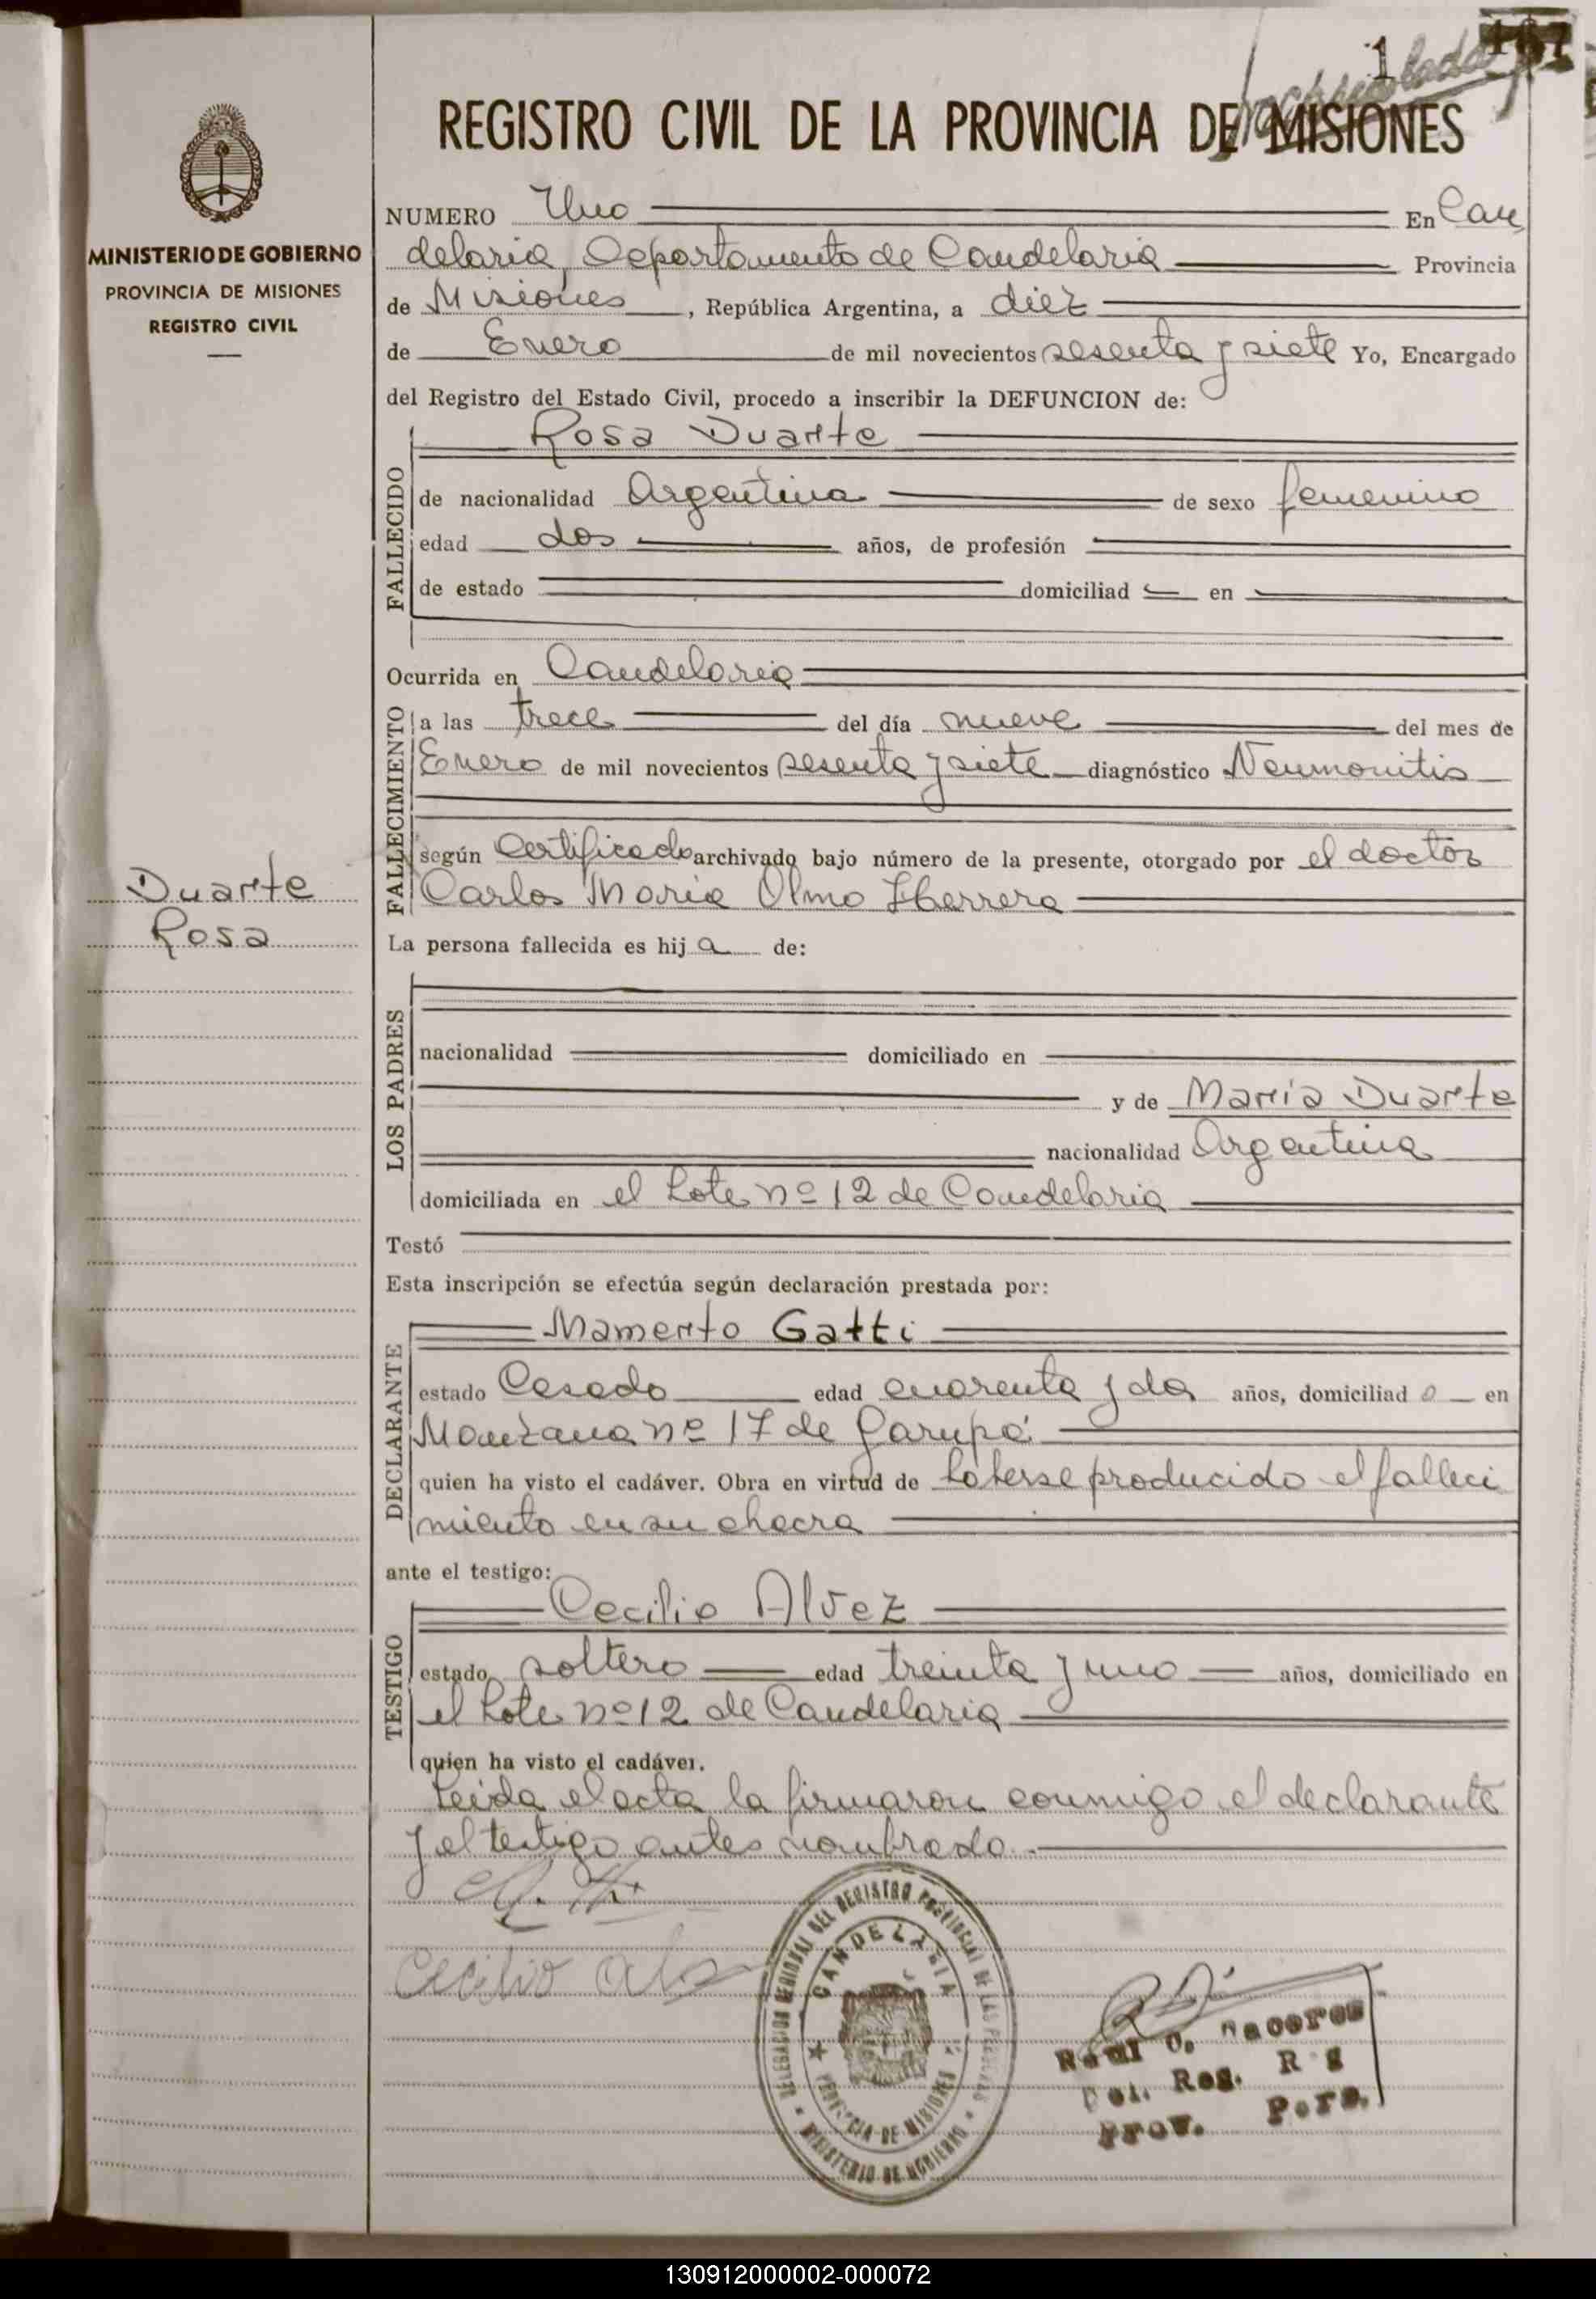 1 167
REGISTRO CIVIL DE LA PROVINCIA DE MISIONES
MINISTERIO DE GOBIERNO
PROVINCIA DE MISIONES
REGISTRO CIVIL
NUMERO Uno En Can
delaria, Departamento de Candelaria Provincia
de Misiones, República Argentina, a diez
de Enero de mil novecientos sesenta y siete Yo, Encargado
del Registro del Estado Civil, procedo a inscribir la DEFUNCION de:
Rosa Duarte
FALLECIDO
de nacionalidad Argentina de sexo femenino
edad dos años, de profesión
de estado domiciliad en
Ocurrida en Candelaria
FALLECIMIENTO
a las trece del día nueve del mes de
Enero de mil novecientos sesenta y siete diagnóstico Neumonitis
según Certificado archivado bajo número de la presente, otorgado por el doctor
Carlos Maria Olmo Herrera
Duarte
Rosa
La persona fallecida es hija de:
LOS PADRES
nacionalidad domiciliado en
y de María Duarte
nacionalidad Argentina
domiciliada en el Lote nº 12 de Candelaria
Testó
Esta inscripción se efectúa según declaración prestada por:
Mamerto Gatti
DECLARANTE
estado Casado edad cuarenta y dos años, domiciliado en
Manzana nº 17 de Garupá
quien ha visto el cadáver. Obra en virtud de haberse producido el falleci
miento en su chacra
ante el testigo:
Cecilio Alvez
TESTIGO
estado soltero edad treinta y uno años, domiciliado en
el Lote nº 12 de Candelaria
quien ha visto el cadáver.
Leida el acta la firmaron conmigo el declarante
y el testigo antes nombrado.
Cecilio
DELEGACION REGIONAL DEL REGISTRO PROVINCIAL DE LAS PERSONAS
CANDELARIA
PROVINCIA DE MISIONES
MINISTERIO DE GOBIERNO
Raul O. Maceres
Del. Reg. Rg
Prov. Pers.
130912000002-000072